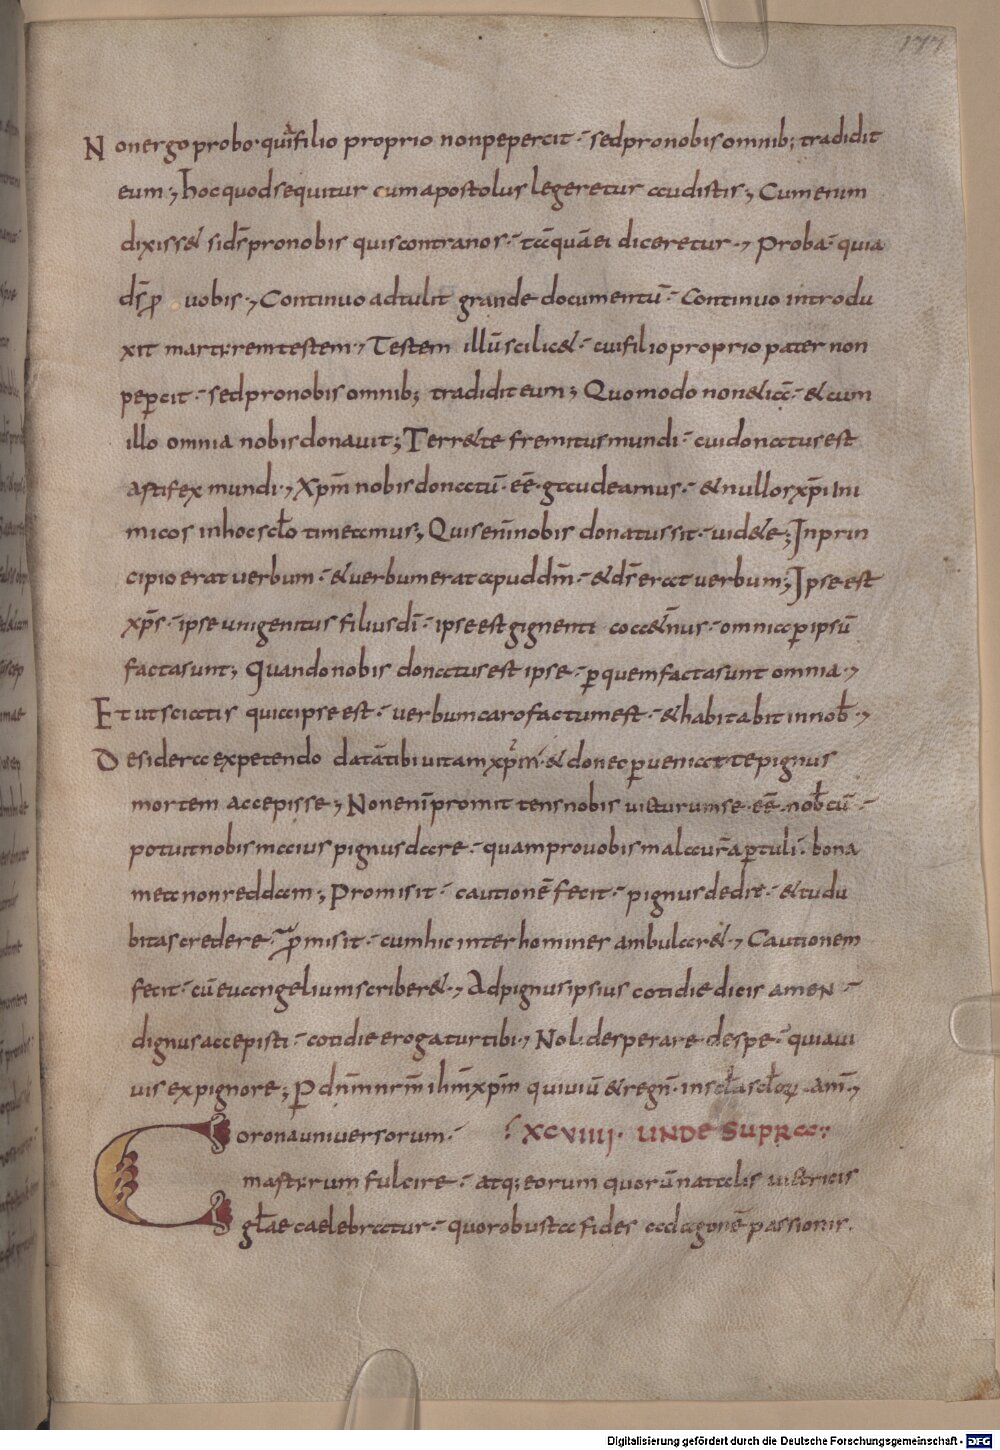 177
Non ergo probo· qui filio proprio non pepercit· sed pro nobis omnib; tradidit
eum; hoc quod sequitur cum apostolus legeretur audistis; Cum enim
dixiss& si d̄s pro nobis quis contra nos· tāquā ei diceretur·, Proba· quia
d̄s p vobis·, Continuo adtulit grande documentū· Continuo introdu
xit martyrem testem·, Testem illū scilic&· cui filio proprio pater non
pepcit· sed pro nobis omnib; tradidit eum; Quomodo non & icc̄· & cum
illo omnia nobis donavit; Terr& te fremitus mundi· cui donatus est
astifex mundi·, Xp̄m nobis donatū· eē· gaudeamus· & nullos xp̄i ini
micos in hoc sc̄lo timeamus; Quis enī nobis donatus sit· vid&e; In prin
cipio erat verbum· & verbum erat apud dm̄· & d̄s erat verbum; Ipse est
xp̄s· ipse unigenitus filius dī· ipse est gignenti coa&̄nus· omnia p ipsū
facta sunt; Quando nobis donatus est ipse· p quem facta sunt omnia·,
Et ut sciatis quia ipse est· verbum caro factum est· & habitabit in nob̄·,
Desidera expetendo datā tibi vitam xp̄m· & donec p veniat te pignus
mortem accepisse; Non enī promittens nobis victurum se· eē· nob̄cū·
potuit nobis maius pignus dare· quam pro vobis mala vr̄a ptuli· bona
mea non reddam; Promisit· cautionē fecit· pignus dedit· & tu du
bitas credere· p̄misit· cum hic inter homines ambular&·, Cautionem
fecit· cū evangelium scriber&·, Ad pignus ipsius cotidie dicis amen·
dignus accepisti· cotidie erogatur tibi·, Noli desperare de spe· quia vi
vis ex pignore; P dn̄m nr̄m ih̄m xp̄m qui viū & regn̄· in sc̄la sc̄lorꝝ am̄·,
Corona universorum· XCVIIII· UNDE SUPRA:
mastyrum fulcire· atq; eorum quorū natalis victricis
gl̄ae caelebratur· quo robusta fides ad agonē passionis.
Digitalisierung gefördert durch die Deutsche Forschungsgemeinschaft - DFG